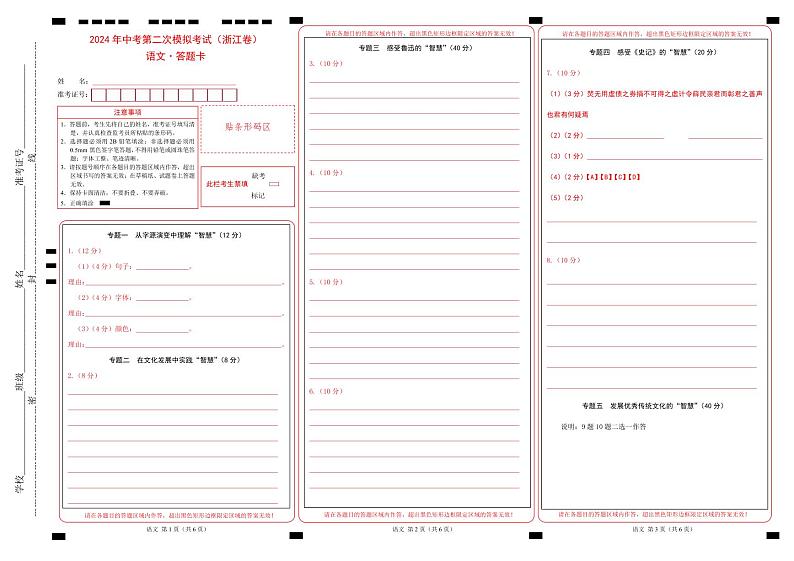 2024 年中考第二次模拟考试（浙江卷）
语文·答题卡
姓 名：
准考证号：
注意事项
1．答题前，考生先将自己的姓名，准考证号填写清
楚，并认真检查监考员所粘贴的条形码。
2．选择题必须用 2B 铅笔填涂；非选择题必须用
0.5mm 黑色签字笔答题，不得用铅笔或圆珠笔答
题；字体工整、笔迹清晰。
3．请按题号顺序在各题目的答题区域内作答，超出
区域书写的答案无效；在草稿纸、试题卷上答题
无效。
4．保持卡面清洁，不要折叠、不要弄破。
5．正确填涂
贴条形码区
此栏考生禁填
缺考
标记
学校
班级
姓名
准考证号
密
封
线
专题一 从字源演变中理解“智慧”(12 分)
1.（12 分）
（1）（4 分）句子：。
理由：。
（2）（4 分）字体：。
理由：。
（3）（4 分）颜色：。
理由：。
专题二 在文化发展中实践“智慧”(8 分)
2.（8 分）
请在各题目的答题区域内作答，超出黑色矩形边框限定区域的答案无效！
语文 第 1 页（共 6 页）
请在各题目的答题区域内作答，超出黑色矩形边框限定区域的答案无效！
专题三 感受鲁迅的“智慧”(40 分)
3.（10 分）
4.（10 分）
5.（10 分）
6.（10 分）
请在各题目的答题区域内作答，超出黑色矩形边框限定区域的答案无效！
语文 第 2 页（共 6 页）
请在各题目的答题区域内作答，超出黑色矩形边框限定区域的答案无效！
专题四 感受《史记》的“智慧”(20 分)
7.（10 分）
（1）（3 分）焚无用虚债之券捐不可得之虚计令薛民亲君而彰君之善声
也君有何疑焉
（2）（2 分）
（3）（1 分）
（4）（2 分）【A】【B】【C】【D】
（5）（2 分）
8.（10 分）
专题五 发展优秀传统文化的“智慧”(40 分)
说明：9 题 10 题二选一作答
请在各题目的答题区域内作答，超出黑色矩形边框限定区域的答案无效！
语文 第 3 页（共 6 页）